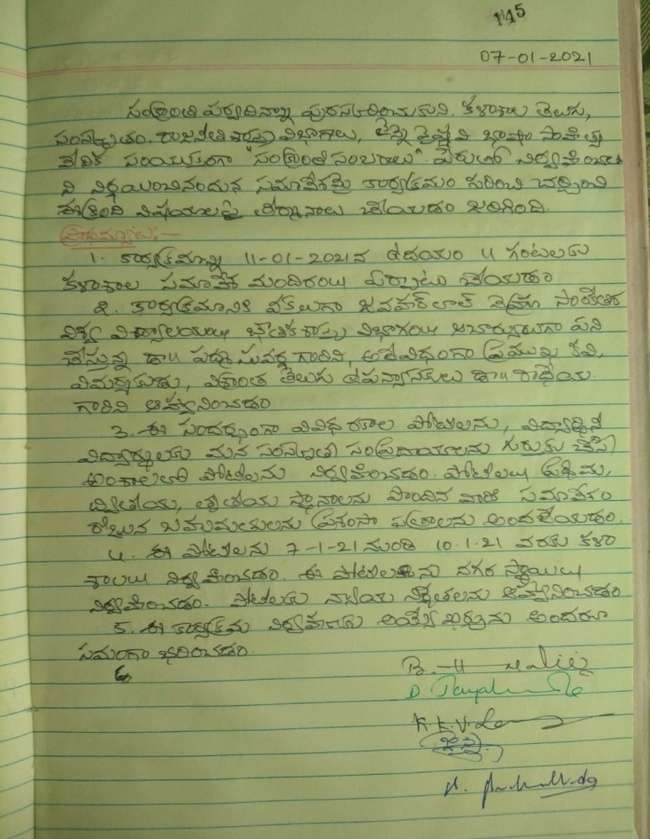 145
07-01-2021
సంక్రాంతి పర్వదినాన్ని పురస్కరించుకుని. కళాశాల తెలుగు,
సంస్కృతం. రాజనీతిశాస్త్ర విభాగాలు,
వేదిక సంయుక్తంగా "సంక్రాంతి సంబరాలు" పేరుతో నిర్వహించా
ని నిర్ణయించినందున సమావేశమై కార్యక్రమం గురించి చర్చించి
ఈక్రింది విషయాలపై తీర్మానాలు చేయడం జరిగింది.
తీర్మానాలు:-
1. కార్యక్రమాన్ని 11-01-2021న ఉదయం 11 గంటలకు
కళాశాల సమావేశ మందిరంలో ఏర్పాటు చేయుడం
2. కార్యక్రమానికి వక్తలుగా జవహర్‌లాల్ నెహ్రూ సాంకేతిక
విశ్వ విద్యాలయంలో భౌతికశాస్త్ర విభాగంలో పని
చేస్తున్న డా॥ పద్మా సువర్ణ గారిని, అదేవిధంగా ప్రముఖ కవి,
విమర్శకుడు, విశ్రాంత తెలుగు ఉపన్యాసకులు డా॥ రాధేయ
గారిని ఆహ్వానించడం
3. ఈ సందర్భంగా వివిధ రకాల పోటీలను, విద్యార్థినీ
విద్యార్థులకు మన సంస్కృతీ సంప్రదాయాలను గుర్తుకు చేసే
అంశాలలో పోటీలను నిర్వహించడం. పోటీలలో ప్రథమ,
ద్వితీయ, తృతీయ స్థానాలను పొందిన వారికి సమావేశం
రోజున బహుమతులను ప్రశంసా పత్రాలను అందజేయడం.
4. ఈ పోటీలను 7-1-21 నుంచి 10.1.21 వరకు కళా
శాలలో నిర్వహించడం. ఈ పోటీలను నగర స్థాయిలో
నిర్వహించడం. పోటీలకు న్యాయ నిర్ణేతలను ఆహ్వానించడం
5. ఈ కార్యక్రమ నిర్వహణకు అయ్యే ఖర్చును అందరూ
సమంగా భరించడం.
6